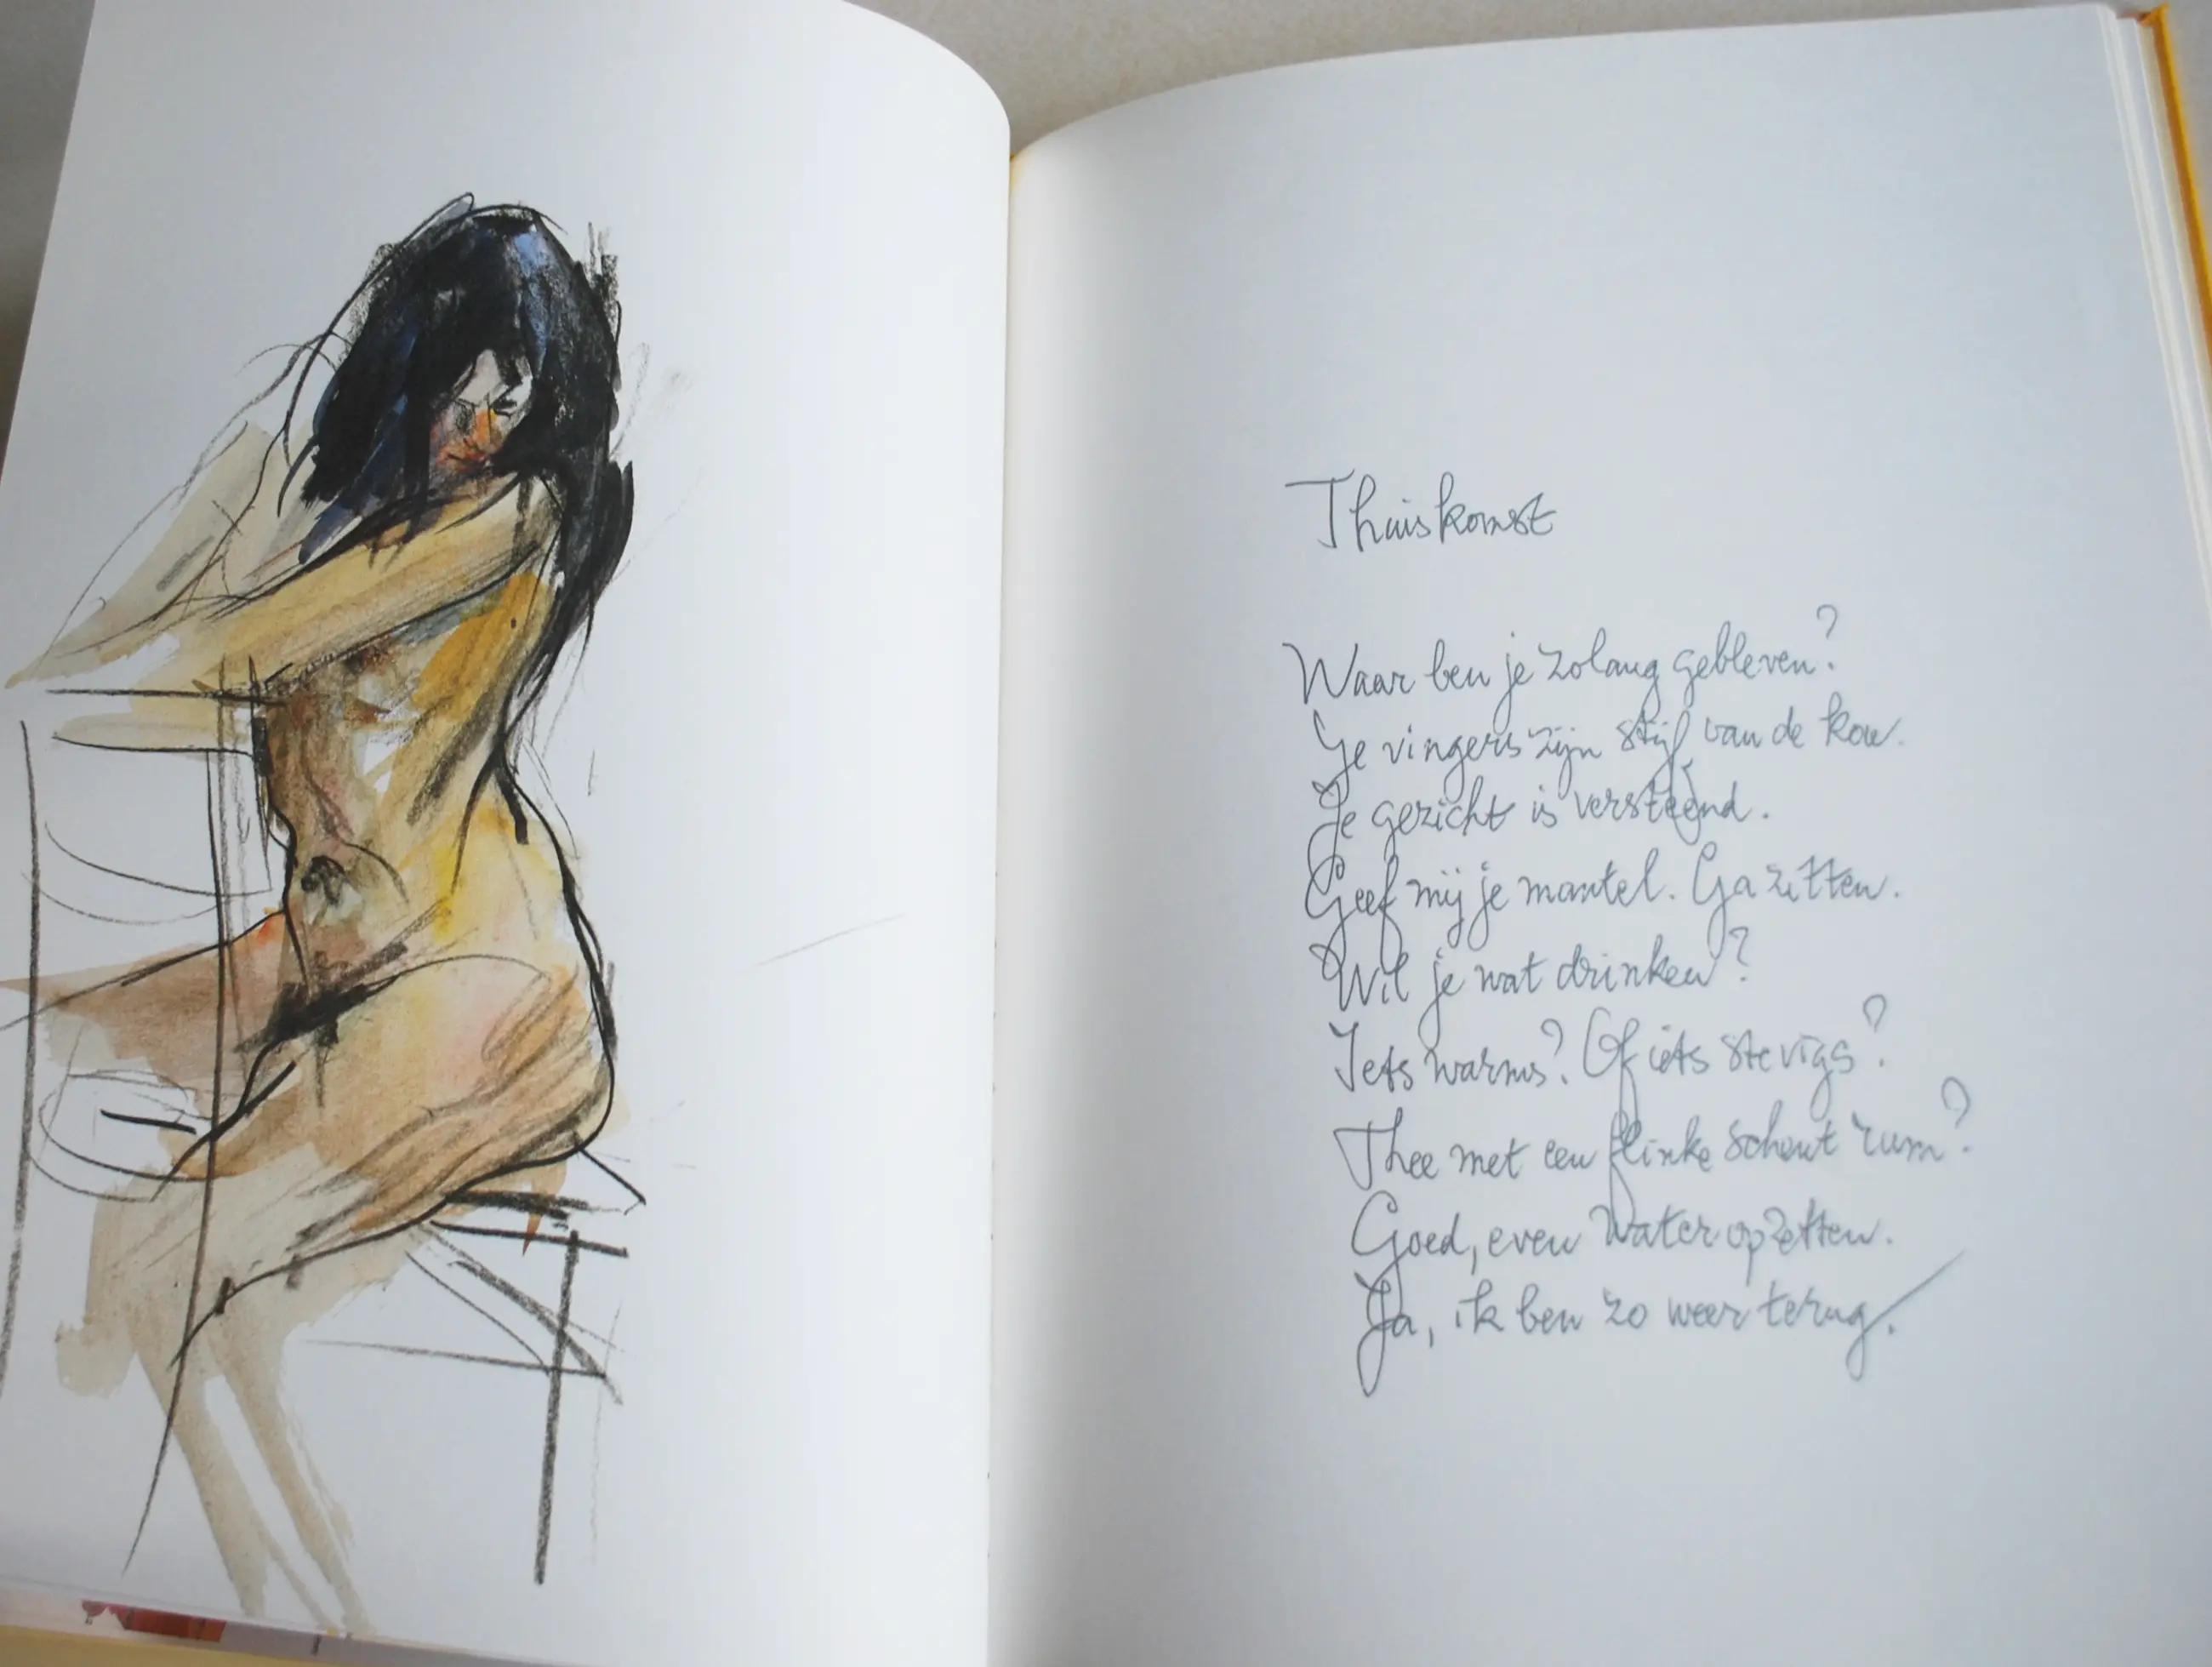 Thuiskomst
Waar ben je zolang gebleven?
Je vingers zijn stijf van de kou.
Je gezicht is versteend.
Geef mij je mantel. Ga zitten.
Wil je wat drinken?
Iets warms? Of iets stevigs?
Thee met een flinke scheut rum?
Goed, even water opzetten.
Ja, ik ben zo weer terug.